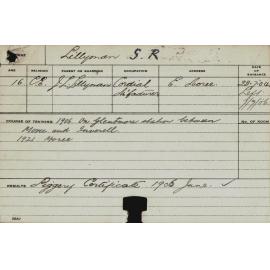 Lillyman S. R
AGE RELIGION PARENT OR GUARDIAN OCCUPATION ADDRESS DATE OF ENTRANCE
16 C.E. J. L. Lillyman Cordial E. Moree 28/7/04
Left
COURSE OF TRAINING 1906. On Glentmore station between NO. OF ROOM
Moree and Inverell
1921 Moree
RESULTS Piggery Certificate 1906 June. ✓